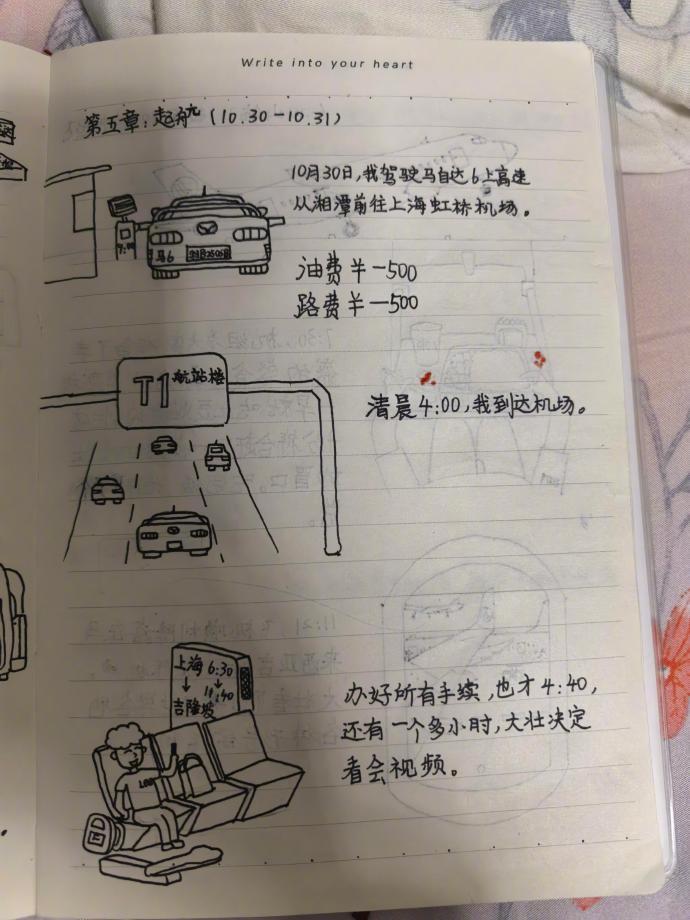 Write into your heart
第五章：起航（10.30－10.31）
10月30日，我驾驶马自达6上高速
从湘潭前往上海虹桥机场。
7:00
马6
油费￥－500
路费￥－500
T1航站楼
清晨4:00，我到达机场。
上海 6:30
↓ ↓
吉隆坡 11:40
办好所有手续，也才4:40，
还有一个多小时，大壮决定
看会视频。